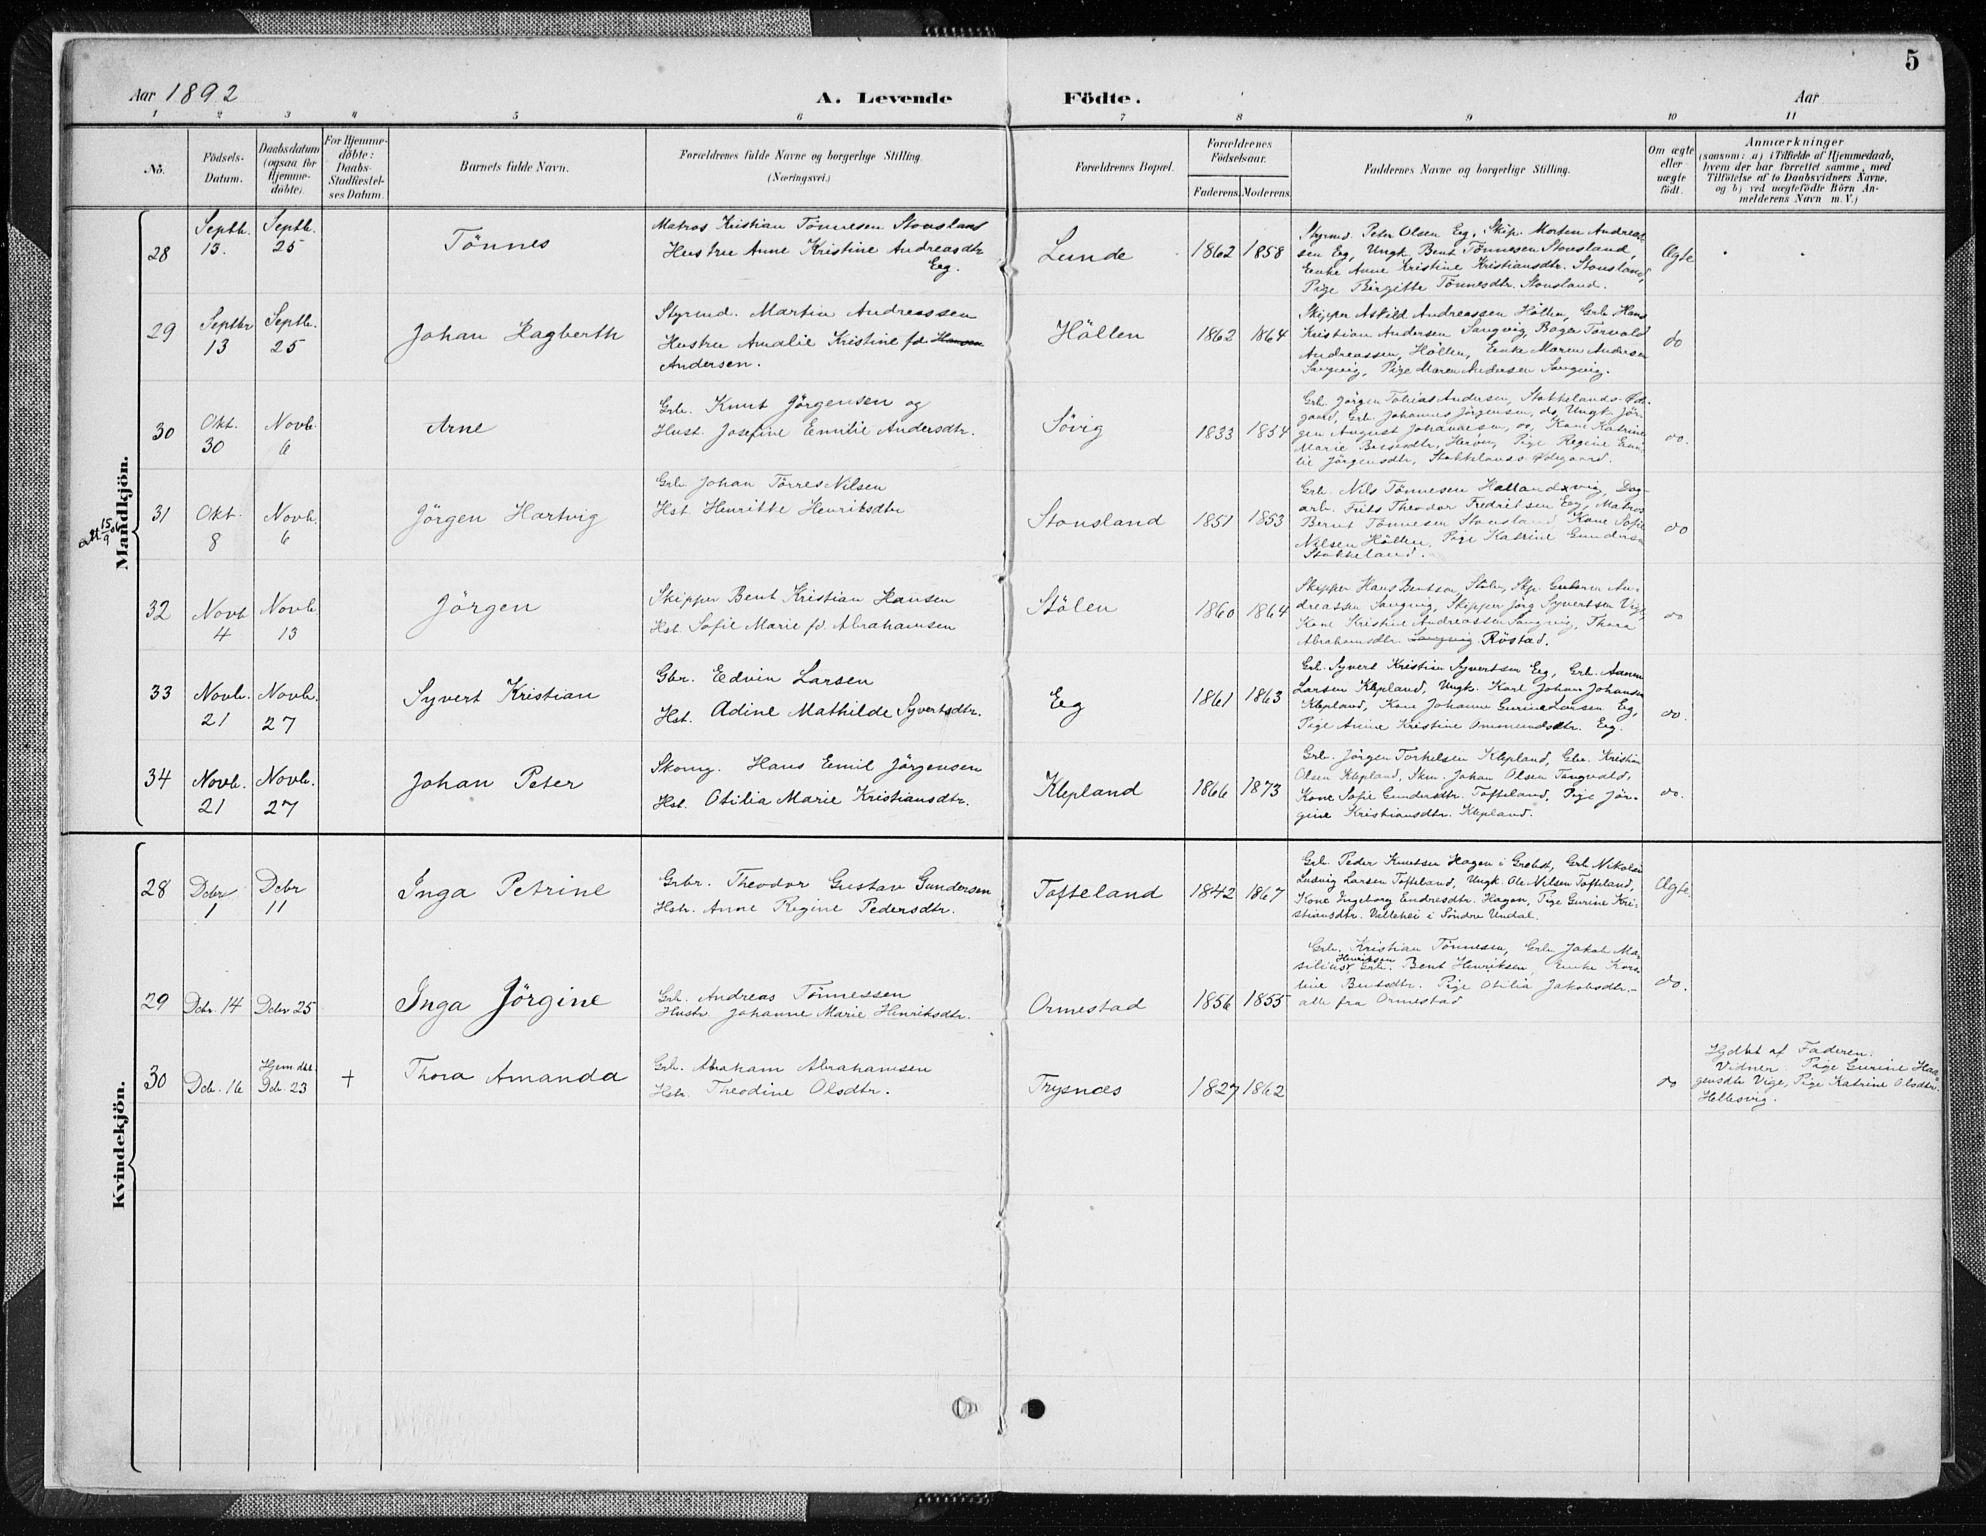 5
Aar 1892
A. Levende Födte.
Aar
1 2 3 4 5 6 7 8 9 10 11
No.
Födsels-
Datum.
Daabsdatum
(ogsaa for
Hjemme-
döbte).
For Hjemme-
döbte:
Daabs-
Stadfæstel-
ses Datum.
Barnets fulde Navn.
Forældrenes fulde Navne og borgerlige Stilling.
(Næringsvei.)
Forældrenes Bopæl.
Forældrenes
Födselsaar.
Faderens. Moderens.
Faddernes Navne og borgerlige Stilling.
Om ægte
eller
uægte
födt.
Anmærkninger
(saasom: a) i Tilfælde af Hjemmedaab,
hvem der har forrettet samme, med
Tilföielse af to Daabsvidners Navne,
og b) ved uægtefödte Börn An-
melderens Navn m. V.)
Mandkjön.
28
Septb.
13.
Septb.
25
Tönnes
Matros Kristian Tönnesen Stousland
Hustru Anne Kristine Andreasdtr
Eeg.
Lunde
1862 1858
Styrmd. Peter Olsen Eeg, Skip. Morten Andreas-
sen Eeg, Ungk. Bent Tönnesen Stousland,
Enke Anne Kristine Kristiansdtr. Stousland,
Pige Birgitte Tönnesdtr. Stousland.
Ægte
29
Septbr
13
Septb.
25
Johan Hagberth
Styrmd. Martin Andreassen
Hustru Amalie Kristine fd. Hansen
Andersen.
Höllen
1862 1864
Skipper Askild Andreassen Höllen, Grb. Hans
Kristian Andersen Langvig, Bager Torvald
Andreassen, Höllen, Enke Maren Andersen
Langvig, Pige Maren Andersen Langvig.
do
30
Okt.
30
Novb.
6
Arne
Grb. Knut Jörgensen og
Hust. Josefine Emilie Andersdtr.
Sövig
1833 1854
Grb. Jörgen Tobias Andersen, Stokkelands-Öde-
gaard, Grb. Johannes Jörgensen, do, Ungk. Jör-
gen August Johannesen, do, Kone Katrine
Marie Pige Regine Emi-
lie Jörgensdtr, Stokklands Ödegaard.
do.
att 15/9 06
31
Okt.
8
Novb.
6
Jörgen Hartvig
Grb. Johan Törres Nilsen
Hst. Henritte Henriksdtr
Stousland
1851 1853
Grb. Nils Tönnesen Hallandsvig, Dag-
arb. Frits Theodor Fredriksen Eeg, Matros
Bernt Tönnesen Stousland, Kone Sofie
Nilsen Höllen, Pige Katrine Gunders
Stokkeland.
do
32
Novb
4
Novb
13
Jörgen
Skipper Bent Kristian Hansen
Hst. Sofie Marie fd. Abrahamsen
Stölen
1860 1864
Skipper Hans Bentsen, Stölen, Skp. An-
dreassen Langvig, Skipper Jörg Syvertsen Vige,
Kone Kristine Andreassen Langvig, Thora
Abrahamsdtr. Langvig Röstad.
do
33
Novb.
21
Novb.
27
Syvert Kristian
Gbr. Edvin Larsen
Hst. Adine Mathilde Syvertsdtr.
Eeg
1861 1863
Grb. Syvert Kristian Syvertsen Eeg, Grb. Aanen
Larsen Klepland, Ungk. Karl Johan Johansen
Klepland, Kone Johanne Gurine Larsen Eeg,
Pige Anine Kristine Ommundsdtr. Eeg
do.
34
Novb.
21
Novb.
27
Johan Peter
Skomg. Hans Emil Jörgensen
Hst. Otilia Marie Kristiansdtr.
Klepland
1866 1873
Grb. Jörgen Torkelsen Klepland, Gbr. Kristian
Olsen Klepland, Skm. Johan Olsen Tangvald,
Kone Sofie Gundersdtr. Tofteland, Pige Jör-
gine Kristiansdtr. Klepland.
do.
Kvindekjön.
28
Dcbr
1
Dcbr
11
Inga Petrine
Grbr. Theodor Gustav Gundersen
Hstr. Anne Regine Pedersdtr.
Tofteland
1842 1867
Grb. Peder Knutsen Hagen i Greibst, Grb. Nikolai
Ludvig Larsen Tofteland, Ungk. Ole Nilsen Tofteland,
Kone Ingeborg Endresdtr. Hagen, Pige Gurine Kri-
stiansdtr. Villehei i Söndre Undal.
Ægte
29
Dcbr. 14
Dcbr 25
Inga Jörgine
Grb. Andreas Tönnessen
Hustr. Johanne Marie Henriksdtr.
Ormestad
1856 1855
Grb. Kristian Tönnesen, Grb. Jakob Ma-
silius Henriksen, Grb. Bent Henriksen, Enke
Bentsdtr. Pige Otilia Jakobsdtr. -
alle fra Ormestad
do.
30
Dcb. 16
Hjemdbt.
Dcb. 23
+
Thora Amanda
Grb. Abraham Abrahamsen
Hstr. Theodine Olsdtr.
Trysnæs
1827 1862
do
Hjdbt af Faderen.
Vidner. Pige Gurine Haa-
gensdtr Vige, Pige Katrine Olsdtr.
Hellesvig.